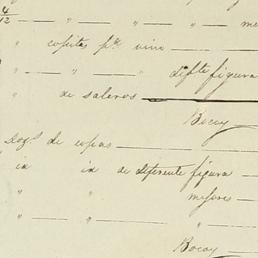 4/12 — " — " — " — me
" copitas pa. vino —
" — " — difte figura
" de saleros —
Bocoy —
Dozs. de copas — " —
id id de diferente figura —
" " mejores —
" — " — " —
Bocoy —